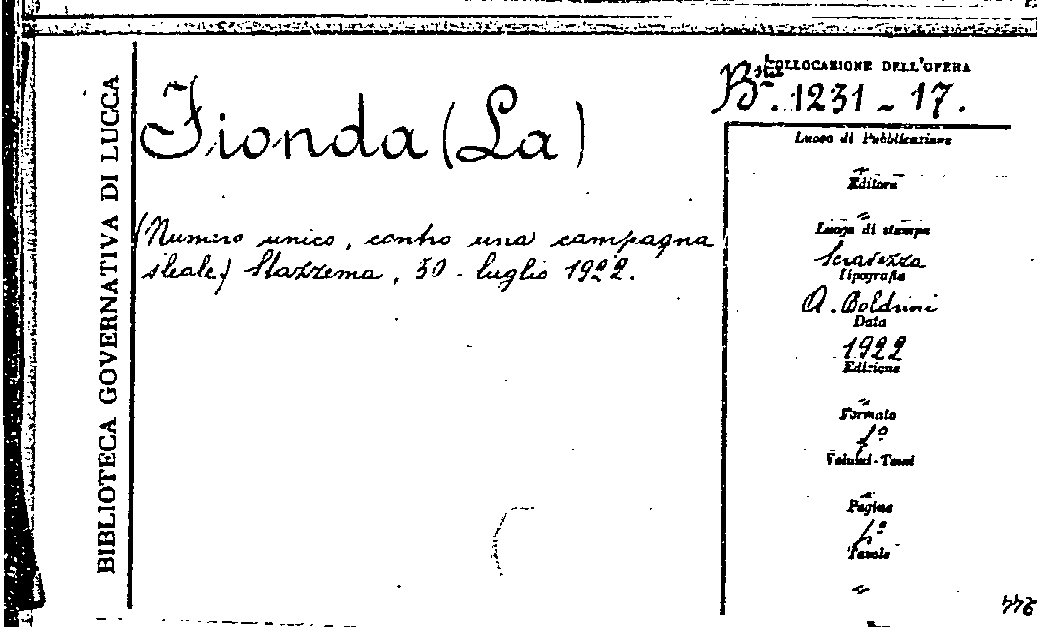 BIBLIOTECA GOVERNATIVA DI LUCCA
Fionda (La)
(Numero unico, contro una campagna
sleale) Stazzema, 30 - luglio 1922.
COLLOCAZIONE DELL'OPERA
Bta. 1231 - 17.
Luogo di Pubblicazione
"
Editore
"
Luogo di stampa
Seravezza
Tipografia
A. Boldrini
Data
1922
Edizione
"
Formato
fo
Volumi-Tomi
"
Pagine
Tavole
"